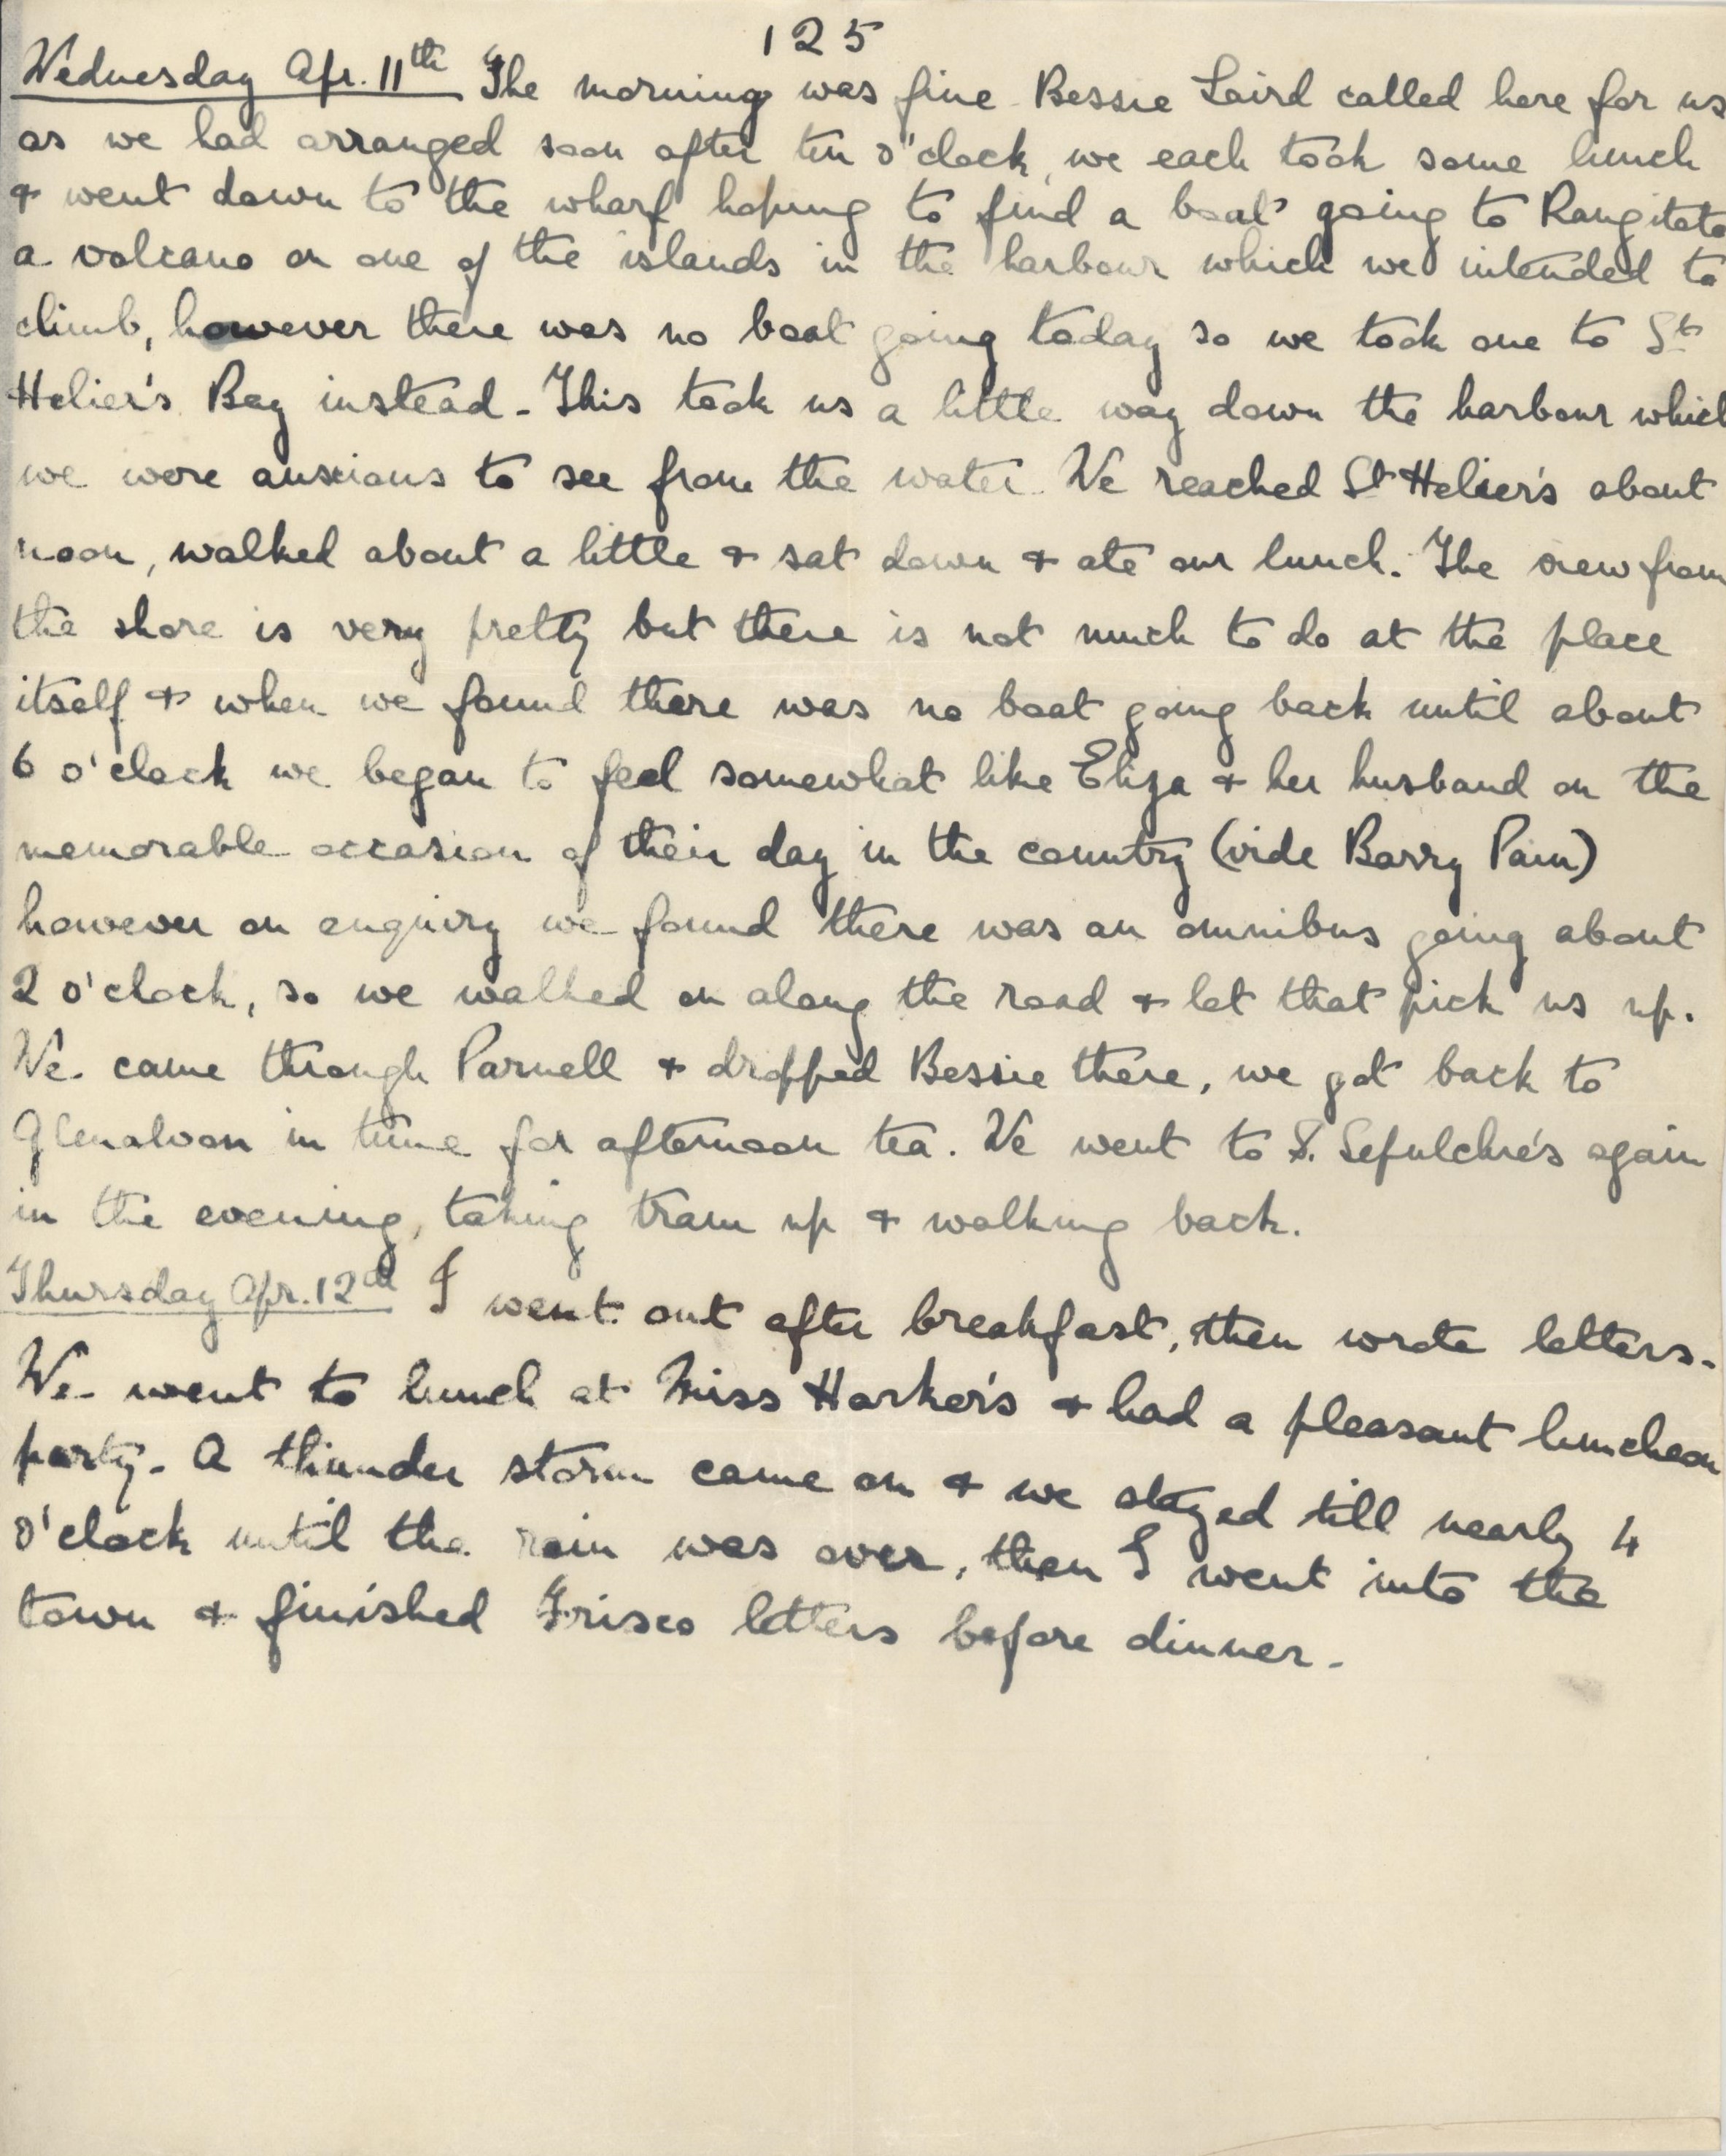 125
Wednesday Apr. 11th The morning was fine. Bessie Laird called here for us
as we had arranged soon after ten o'clock, we each took some lunch
& went down to the wharf hoping to find a boat going to Rangitoto
a volcano on one of the islands in the harbour which we intended to
climb, however there was no boat going today so we took one to St
Helier's Bay instead - This took us a little way down the harbour which
we were anxious to see from the water. We reached St Helier's about
noon, walked about a little & sat down & ate our lunch. The view from
the shore is very pretty but there is not much to do at the place
itself & when we found there was no boat going back until about
6 o'clock we began to feel somewhat like Eliza & her husband on the
memorable occasion of their day in the country (vide Barry Pain)
however on enquiry we found there was an omnibus going about
2 o'clock, so we walked on along the road & let that pick us up.
We came through Parnell & dropped Bessie there, we got back to
Glenalvon in time for afternoon tea. We went to S. Sepulchre's again
in the evening, taking tram up & walking back.
Thursday Apr. 12th I went out after breakfast, then wrote letters.
We went to lunch at Miss Harker's & had a pleasant luncheon
party. A thunder storm came on & we stayed till nearly 4
o'clock until the rain was over, then I went into the
town & finished Frisco letters before dinner.